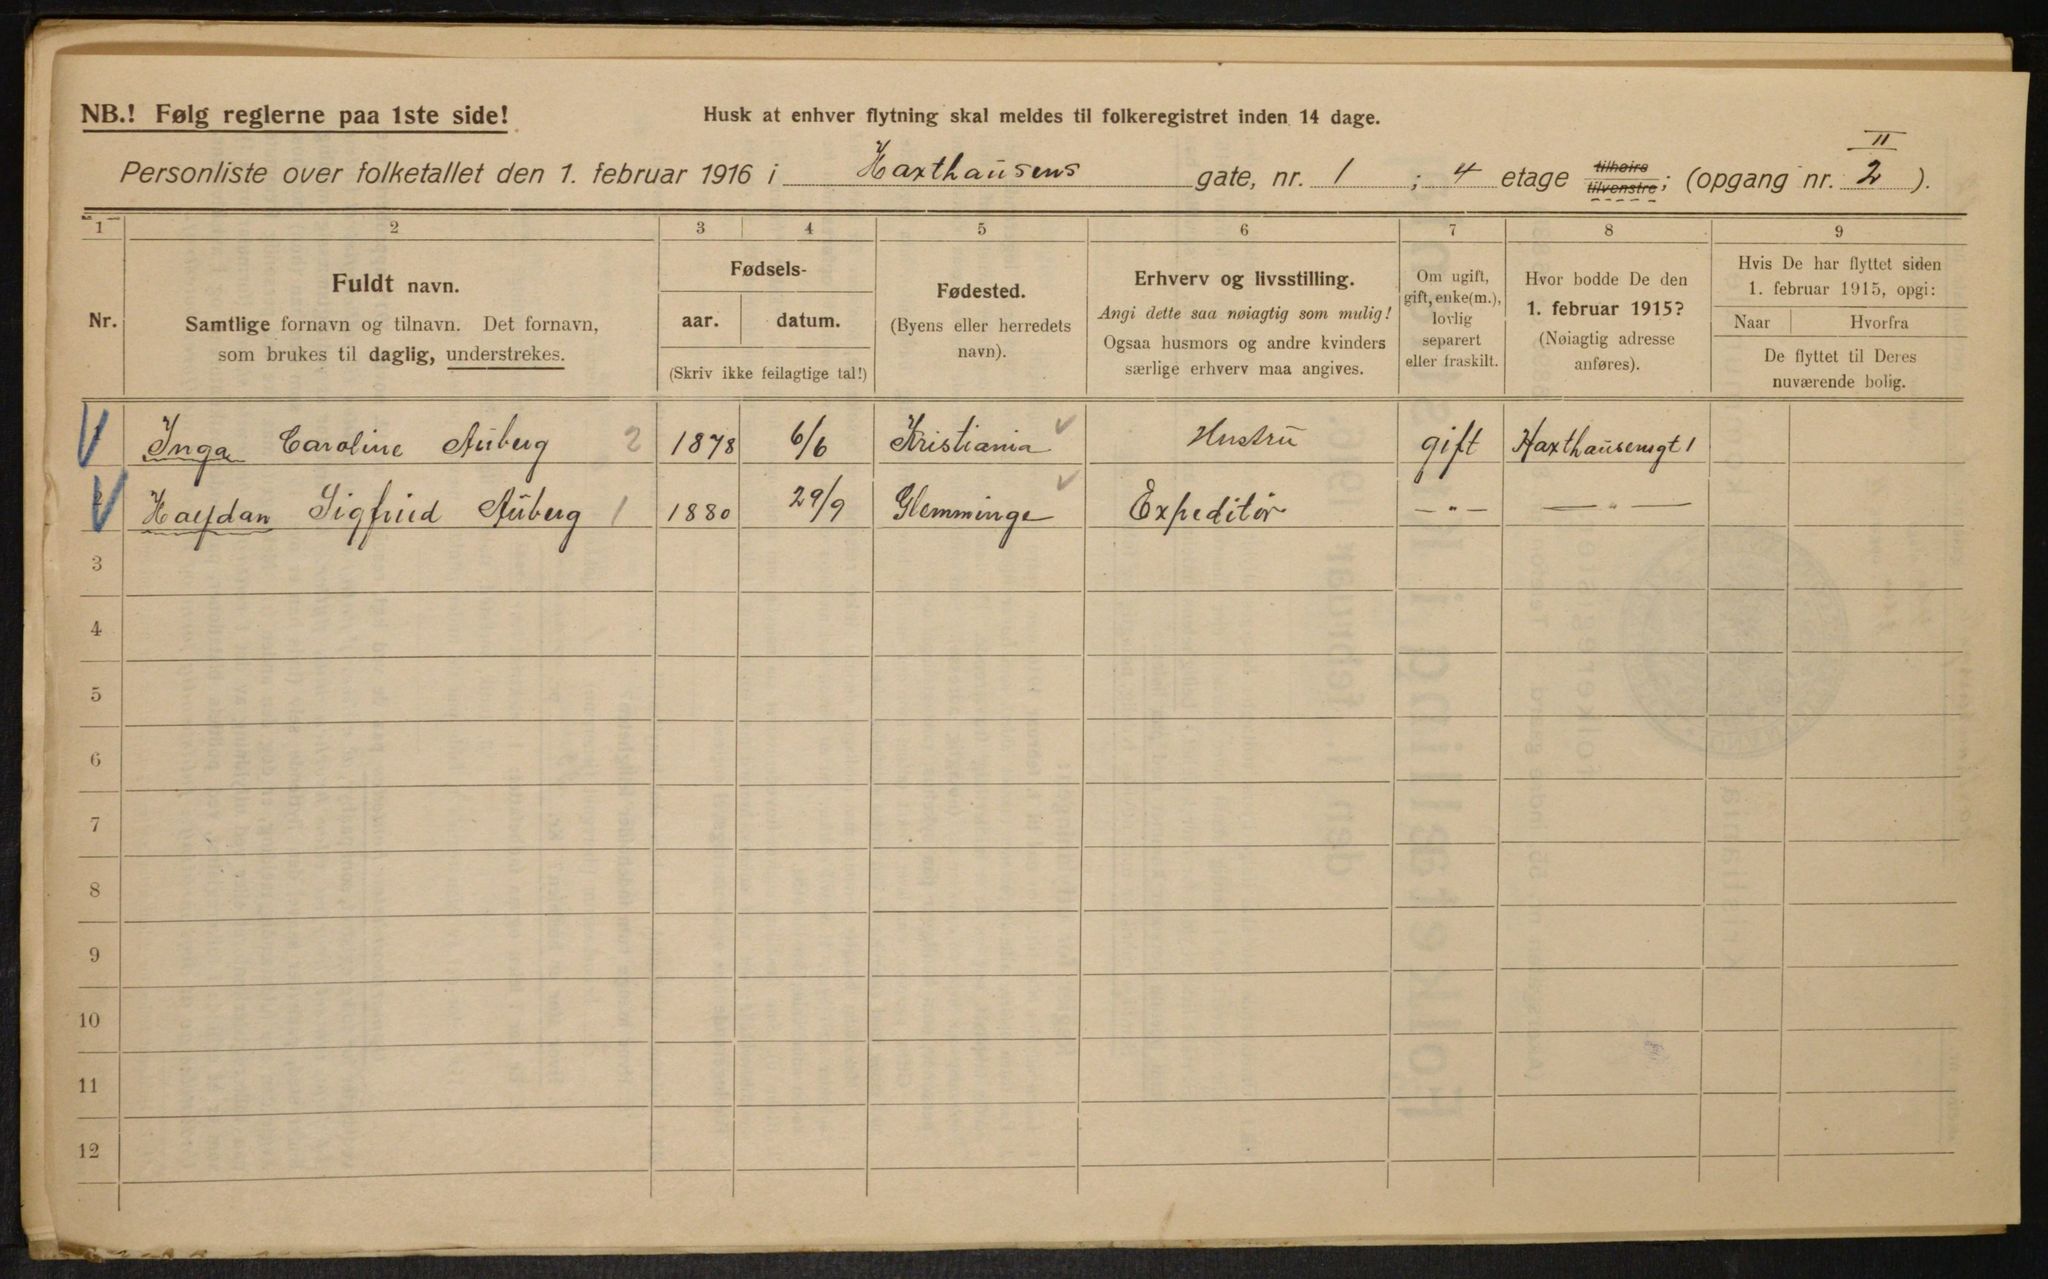 NB.! Følg reglerne paa 1ste side!
Husk at enhver flytning skal meldes til folkeregistret inden 14 dage.
II
Personliste over folketallet den 1. februar 1916 i Haxthausens gate, nr. 1 ; 4 etage tilhøire tilvenstre; (opgang nr. 2 ).
1 2 3 4 5 6 7 8 9
Nr.
Fuldt navn.
Samtlige fornavn og tilnavn. Det fornavn,
som brukes til daglig, understrekes.
Fødsels-
aar. datum.
(Skriv ikke feilagtige tal!)
Fødested.
(Byens eller herredets
navn).
Erhverv og livsstilling.
Angi dette saa nøiagtig som mulig!
Ogsaa husmors og andre kvinders
særlige erhverv maa angives.
Om ugift,
gift, enke(m.),
lovlig
separert
eller fraskilt.
Hvor bodde De den
1. februar 1915?
(Nøiagtig adresse
anføres).
Hvis De har flyttet siden
1. februar 1915, opgi:
Naar Hvorfra
De flyttet til Deres
nuværende bolig.
1 Inga Caroline Auberg 2 1878 6/6 Kristiania Hustru gift Haxthausensgt 1
2 Halfdan Sigfried Auberg 1 1880 29/9 Glemminge Expeditør —„— —„—
3
4
5
6
7
8
9
10
11
12